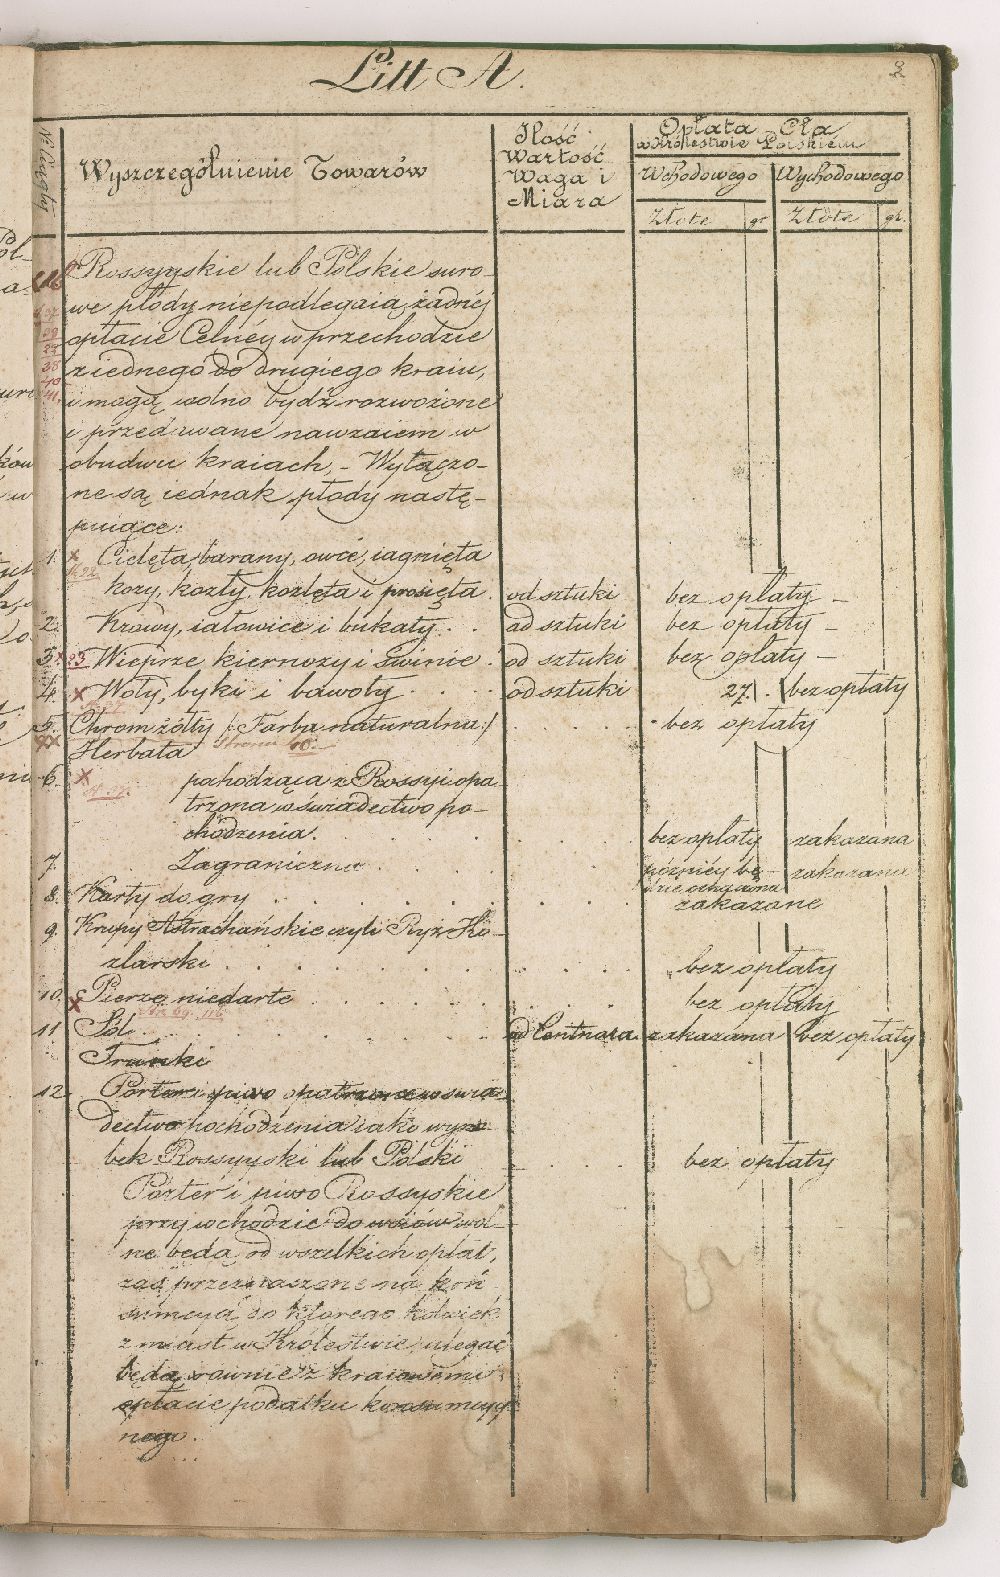 Litt A.
2
N. Liczby
Wyszczególnienie Towarów
Ilość Wartość Waga i Miara
Opłata Cła
w Królestwie Polskiém
Wchodowego
Wychodowego
Złote gr. Złote gr.
Rossyyskie lub Polskie suro-
we płody niepodlegaią żadnéj
opłacie Celnéy w przechodzie
z iednego do drugiego kraiu,
i mogą wolno bydź rozwożone
i przedawane nawzaiem w
obudwu kraiach, - Wyłączo-
ne są iednak płody nastę-
puiące:
1. Cielęta, barany, owce, iagnięta
kozy, kozły, koźlęta i prosięta. od sztuki bez opłaty -
2. Krowy, iałowice i bukaty. . . od sztuki bez opłaty -
3. Wieprze kiernozy i świnie . od sztuki bez opłaty -
4. Woły, byki i bawoły . . . . od sztuki 27. . bez opłaty
5. Chrom żółty /: Farba naturalna :/ . . . . bez opłaty
Herbata
6. pochodząca z Rossyi opa-
trzona w świadectwo po-
chodzenia. . . . . bez opłaty zakazana
7. Zagraniczna . . . . . późniéy bę- zakazana
dzie oznaczona
8. Karty do gry . . . . . . . zakazane
9. Krupy Astrachańskie czyli Ryż Ko-
zlarski . . . . . . . . bez opłaty
10. Pierze niedarte . . . . . . bez opłaty
11. Sól . . . . . . od Centnara zakazana bez opłaty
Trunki
12. Porter i piwo opatrzone w świa-
dectwo pochodzenia iako wyro-
bek Rossyyski lub Polski . . . . bez opłaty
Porter i piwo Rossyskie
przy wchodzie do wol-
ne będą od wszelkich opłat,
zaś przeznaczone na kon-
sumcyą do którego kolwiek
z miast w Królestwie, ulegać
będą równie z kraiowemi
opłacie podatku konsumcyy-
nego.